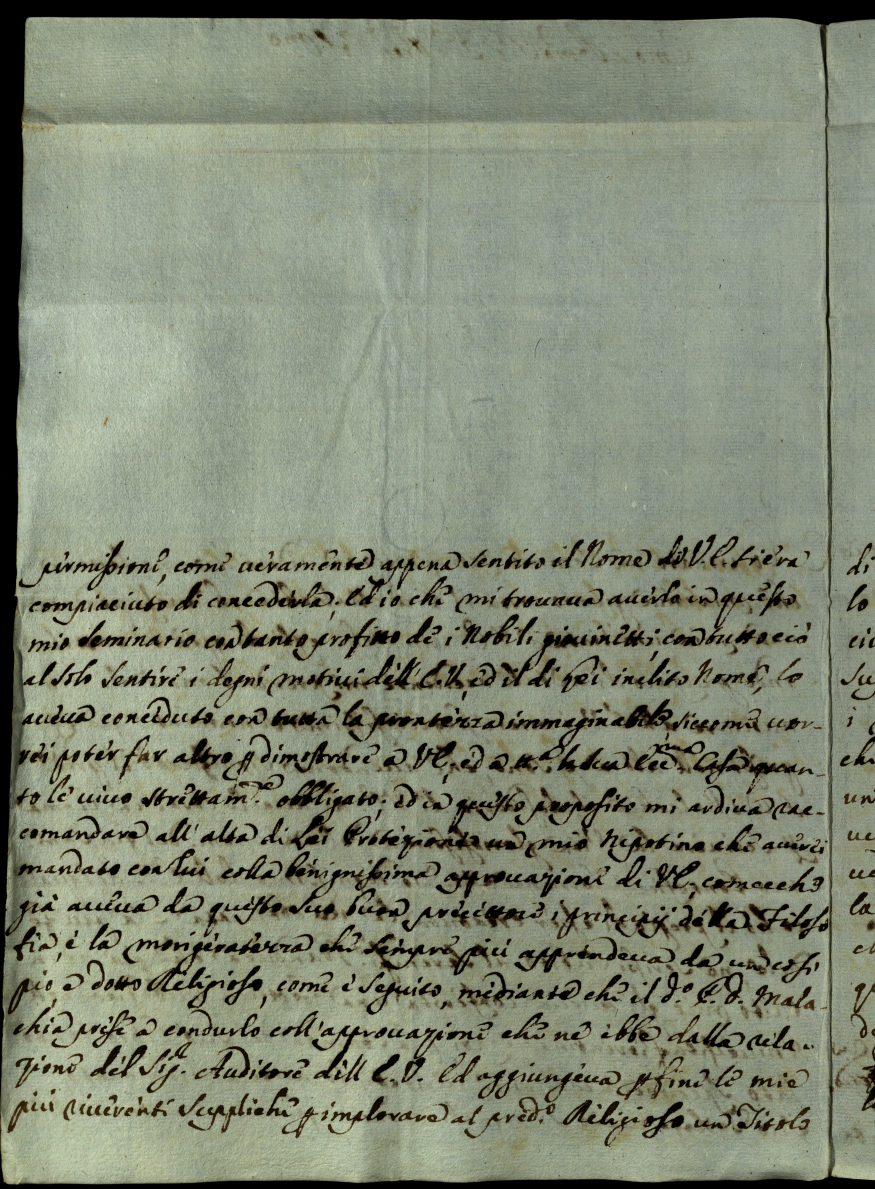 permissione, come veramente appena sentito il Nome di V.E. si era
compiaciuto di concederla; Ed io che mi trovava averlo in questo
mio Seminario con tanto profitto de i Nobili giovinetti, con tutto ciò
al solo sentire i degni motivi dell'E.V., ed il di Lei inclito Nome, lo
aveva conceduto con tutta la prontezza immaginabile, siccome vor-
rei poter far altro p dimostrare a VE, ed a tt.ª la sua Ecc.ma Casa quan-
to le vivo strettam.te obbligato; ed in questo proposito mi ardiva rac-
comandare all'alta di Lei Protezione un mio Nipotino che averei
mandato con lui colla benignissima approvazione di VE, comecche
già aveva da questo suo buon precettore i principij della Filoso
fia, e la morigeratezza che sempre più apprendeva da un così
pio, e dotto Religioso, come è seguito, mediante che il d.º P. D. Mala-
chia prise a condurlo coll'approvazione che ne ebbe dalla rela-
zione del Sig.r Auditore dell E.V. Ed aggiungeva p fine le mie
più riverenti suppliche p implorare al pred.º Religioso un Titolo
di
lo
i
che
un
la